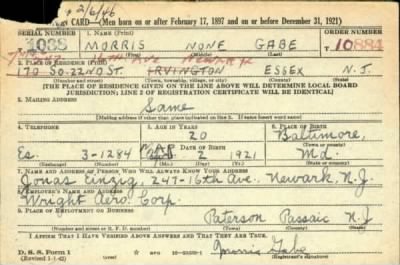 2/6/46
REGISTRATION CARD—(Men born on or after February 17, 1897 and on or before December 31, 1921)
SERIAL NUMBER 1. NAME (Print) ORDER NUMBER
1038 MORRIS NONE GABE T 10884
(First) (Middle) (Last)
AVE NEWARK
2. PLACE OF RESIDENCE (Print)
170 SO. 22ND ST. IRVINGTON ESSEX N.J.
(Number and street) (Town, township, village, or city) (County) (State)
[THE PLACE OF RESIDENCE GIVEN ON THE LINE ABOVE WILL DETERMINE LOCAL BOARD
JURISDICTION; LINE 2 OF REGISTRATION CERTIFICATE WILL BE IDENTICAL]
3. MAILING ADDRESS
Same
[Mailing address if other than place indicated on line 2. If same insert word same]
4. TELEPHONE 5. AGE IN YEARS 6. PLACE OF BIRTH
20 Baltimore,
DATE OF BIRTH (Town or county)
Es. 3-1284 MAR 2 1921 Md.
(Exchange) (Number) (Mo.) (Day) (Yr.) (State or country)
7. NAME AND ADDRESS OF PERSON WHO WILL ALWAYS KNOW YOUR ADDRESS
Jonas 247-16th Ave. Newark, N.J.
8. EMPLOYER'S NAME AND ADDRESS
Wright Aero. Corp.
9. PLACE OF EMPLOYMENT OR BUSINESS
Paterson Passaic N.J
(Number and street or R. F. D. number) (Town) (County) (State)
I AFFIRM THAT I HAVE VERIFIED ABOVE ANSWERS AND THAT THEY ARE TRUE.
D. S. S. Form 1
(Revised 1-1-42) (over) Morris Gabe
(Registrant's signature)